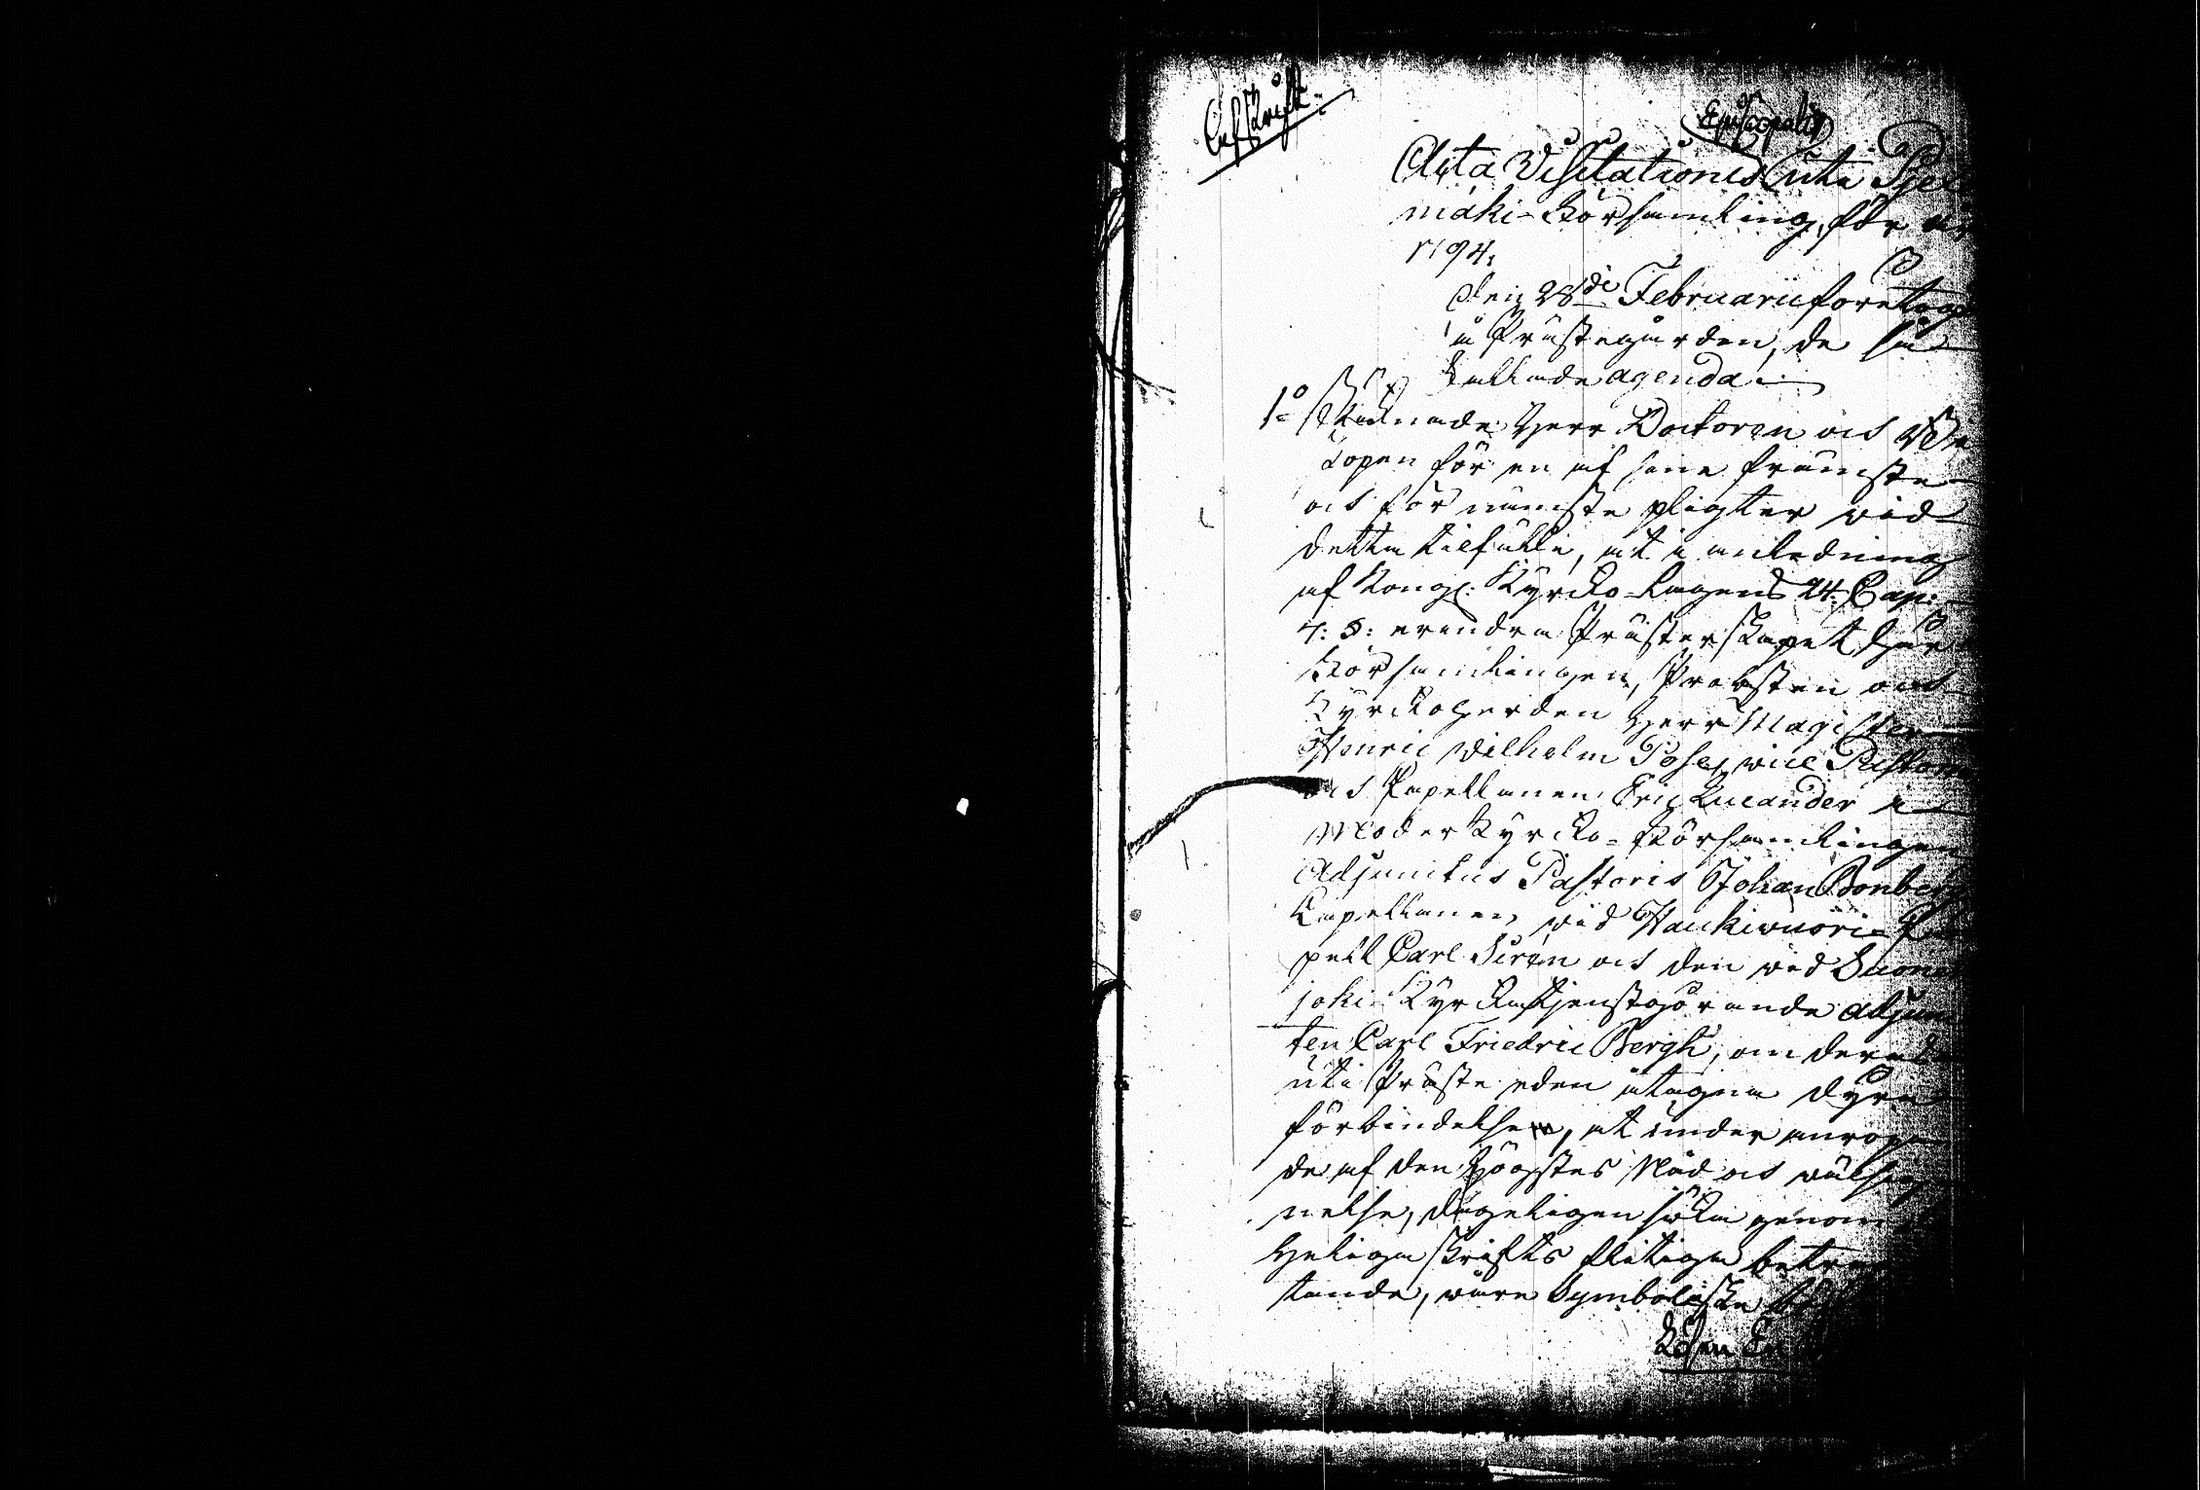 Afskrift.
Episcopalis
Acta Visitationis uti Pjex
mäki-Församling, för år
1794.
den 28de Februarii företogs
i Prästegården, de så
kallade agenda.
1o Räknade Herr Doctoren och Bis
kopen för en af sine främste
och förnämste pligter vid
detta tilfälle, at i anledning
af Kongl: Kyrko-Lagens 24. Cap:
7: §: erindra Prästerskapet här i
Församlingen, Probsten och
Kyrkoherden Herr Magister
Henric Wilhelm Pose, vice Pastoren
och Kapellanen Eric Lucander i
Moderkyrko-Församlingen
Adjunctus Pastoris Johan Bonberg
Capellanen vid Haukivuori-Ka
pell Carl Sirén och den vid Suonen
joki Kyrka tjenstgörande Adjunc
ten Carl Friedric Bergh, om deras
uti Präste eden åtagna dyra
förbindelser, at under anropan
de af den Högstes Nåd och välsig
nelse, dageligen söka genom
Heliga Skrifts flitiga betrak
tande, våre Symboliske